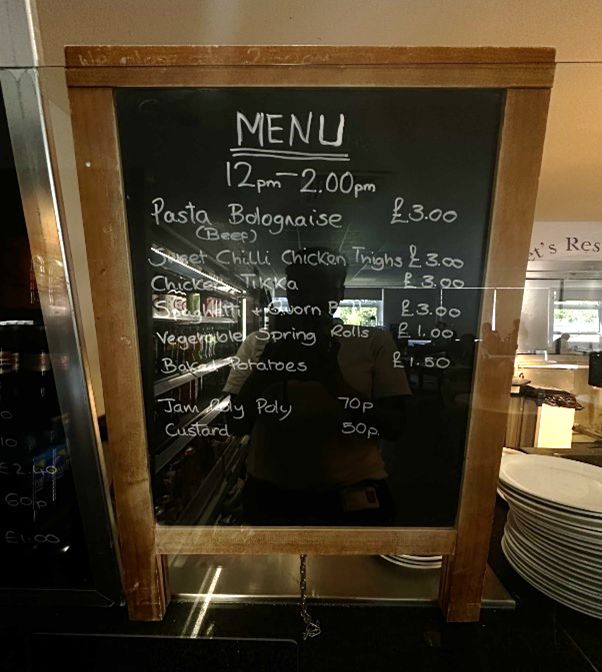 MENU
12pm-2.00pm
Pasta Bolognaise £3.00
(Beef)
Sweet Chilli Chicken Thighs £3.00
Chicken Tikka £3.00
Spaghetti + Quorn £3.00
Vegetable Spring Rolls £1.00
Baked Potatoes £1.50
Jam Roly Poly 70p
Custard 50p
£2.40
60p
£1.00